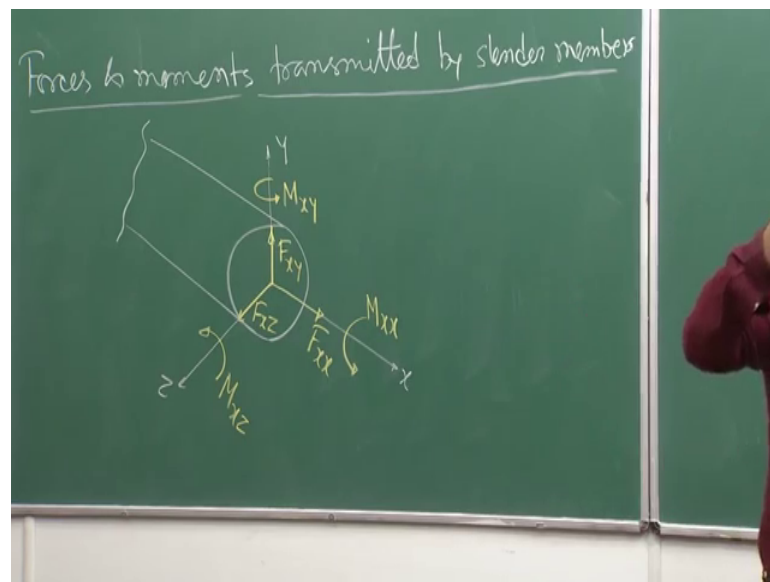 Forces & moments transmitted by slender members
Y
M_xy
F_xy
F_xz
M_xx
F_xx
X
Z
M_xz